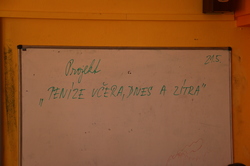 Projekt 29.5.
„PENÍZE VČERA, DNES A ZÍTRA"